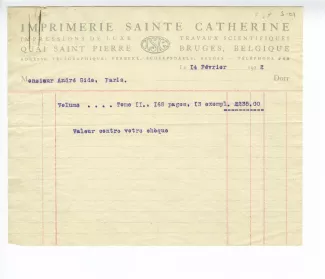 IMPRIMERIE SAINTE CATHERINE
IMPRESSIONS DE LUXE TRAVAUX SCIENTIFIQUES
QUAI SAINT PIERRE BRUGES, BELGIQUE
le 14 Février 192
M onsieur André Gide, Paris. Doit
Volume . . . . Tome II.. 148 pages, 13 exempl.
Valeur contre votre chèque